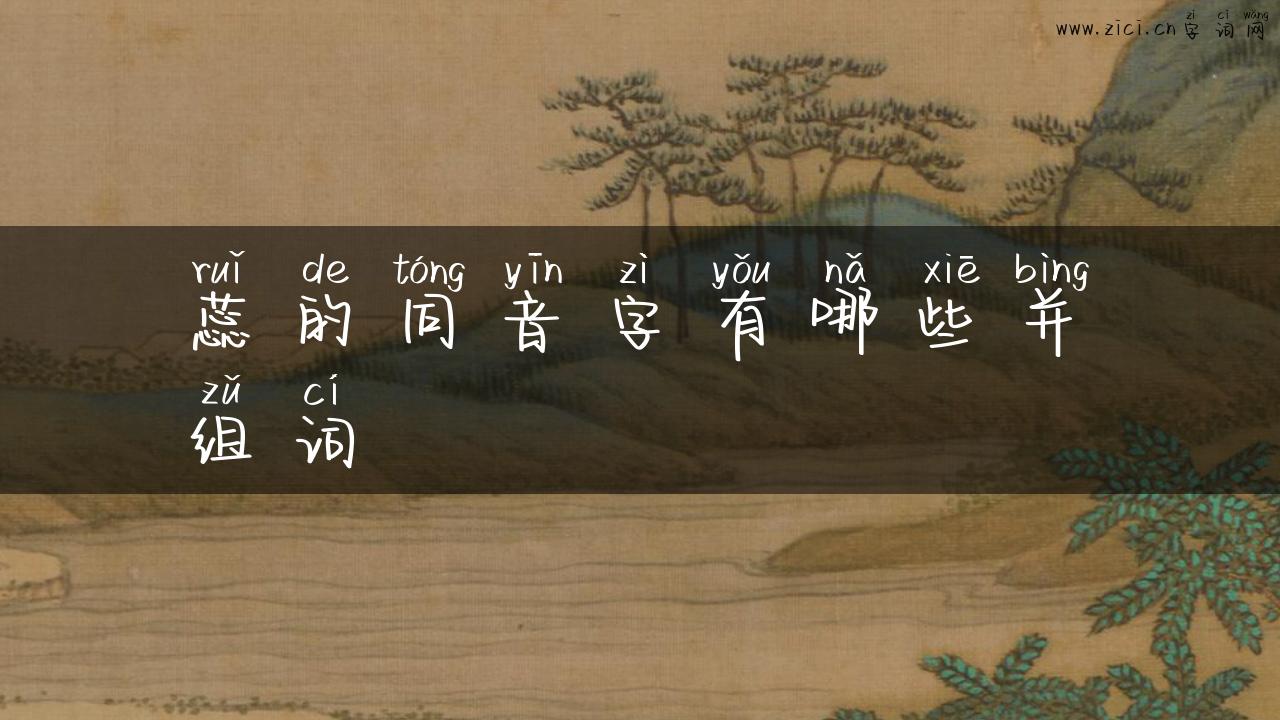 zì cí wǎng
www.zici.cn 字词网
ruǐ de tóng yīn zì yǒu nǎ xiē bìng
蕊的同音字有哪些并
zǔ cí
组词